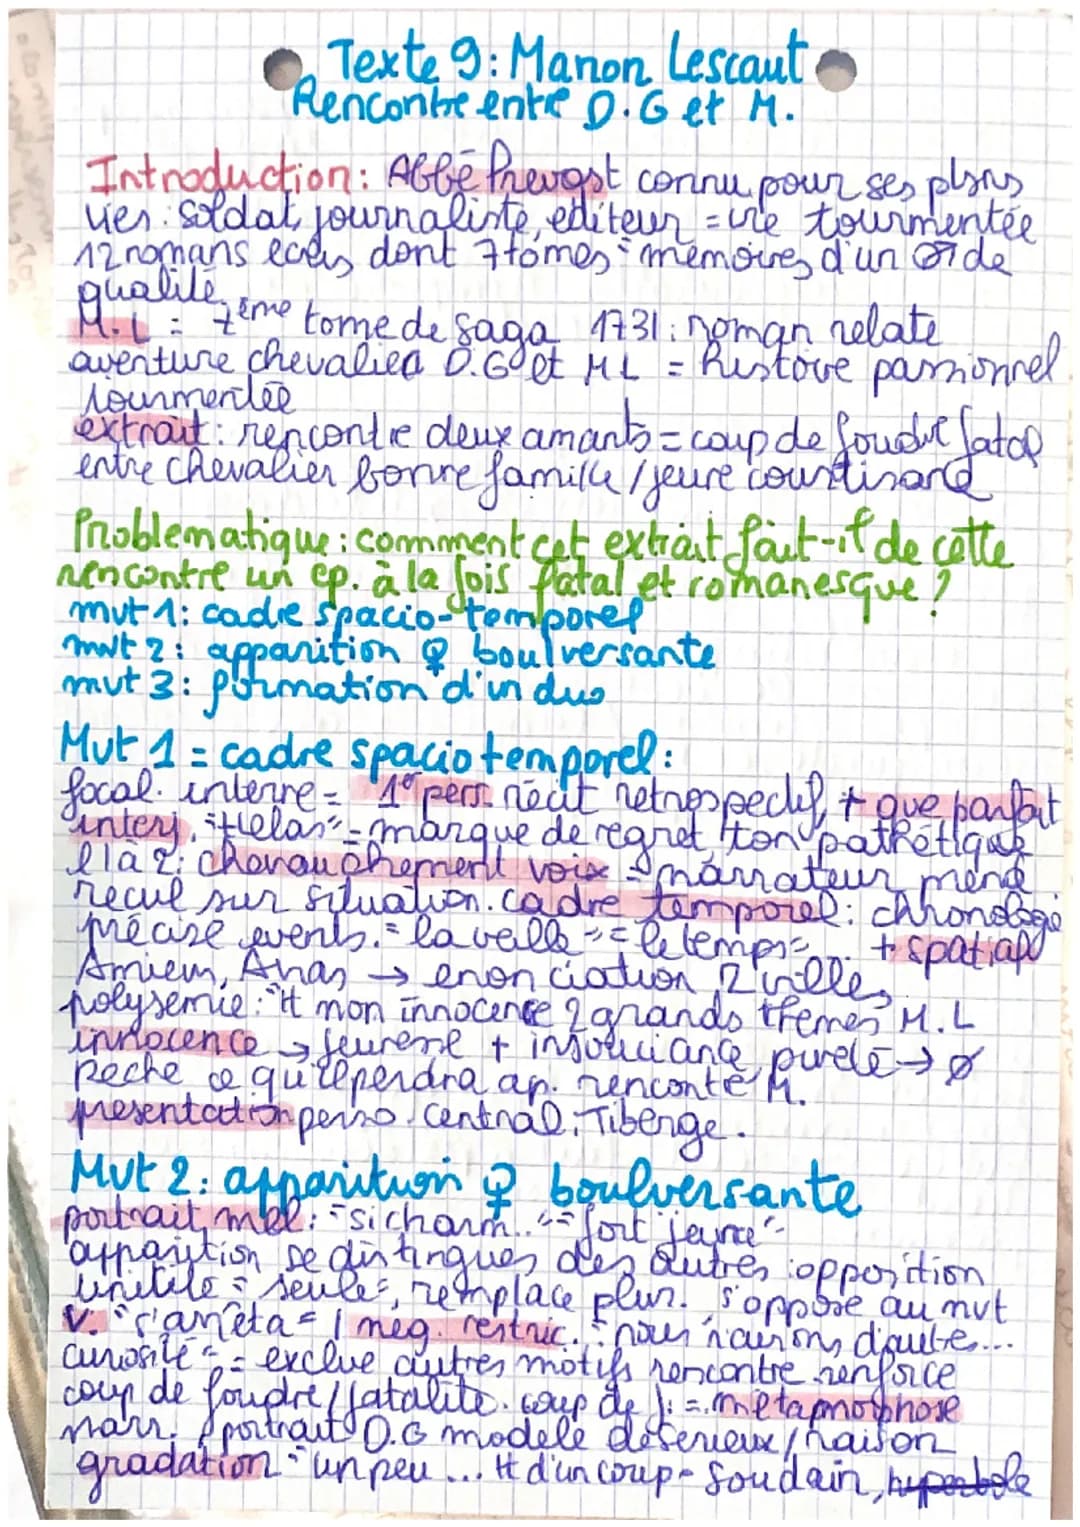 Texte 9: Manon Lescaut
Rencontre entre D.G et M.
Introduction: Abbé Prevost connu pour ses plsrs
vies: soldat, journaliste, editeur = vie tourmentée
12 romans ecris dont 7 tomes "memoires d'un ♂ de
qualité
M.L = 7ème tome de saga 1731: roman relate
aventure chevalier D.G et ML = histoire passionnel
tourmentée
extrait: rencontre deux amants = coup de foudre fatal
entre chevalier bonne famille / jeune courtisane
Problematique: comment cet extrait fait-il de cette
rencontre un ep. à la fois fatal et romanesque?
mvt 1: cadre spacio-temporel
mvt 2: apparition ♀ boulversante
mvt 3: formation d'un duo
Mvt 1 = cadre spacio temporel:
focal. interne = 1e pers. récit retrospectif, + que parfait
interj. "Helas" = marque de regret, ton pathétique
l 1 à 2: chevauchement voix = narrateur mene
recul sur situation. cadre temporel: chronologie
précise events. "la veille" = "le temps" + spatial
Amiens, Arras → enonciation 2 villes
polysemie: "tt mon innocence 2 grands themes M.L
innocence → jeunesse + insouciance, pureté → ∅
Peche ce qu'il perdra ap. rencontre M.
presentation perso. central: Tiberge.
Mvt 2: apparition ♀ boulversante
portrait mel: "si charm.." "fort jeune"
apparition se distingues des autres: opposition
"seule", remplace plur. s'oppose au mvt
v. "s'arrêta" / neg. restric. "nous n'avions d'autre...
curiosité" = exclue autres motifs rencontre renforce
coup de foudre/fatalité. coup de f: = métamorphose
narr. portrait D.G modele de serieux/raison
gradation "un peu ... tt d'un coup" soudain, hyperbole